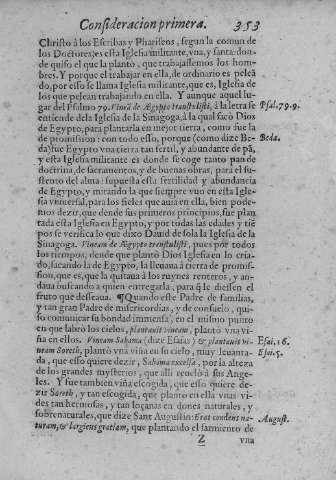 Consideracion primera. 353
Christo à los Escribas y Phariseos, segun la comun de
los Doctores) es esta Iglesia militante, vna, y santa: don-
de quiso el que la plantò, que trabajassemos los hom-
bres. Y porque el trabajar en ella, de ordinario es peleã
do, por esso se llama Iglesia militante, que es, Iglesia de
los que pelean trabajando en ella. Y aunque aquel lu-
gar del Psalmo 79. Vineã de Ægypto transtulisti, à la letra se
Psal. 79. 9.
entiende dela Iglesia de la Sinagoga, à la qual sacò Dios
de Egypto, para plantarla en mejor tierra, como fue la
de promission: con todo esso, porque (como dize Be-
Beda.
da) fue Egypto vna tierra tan fertil, y abundante de pã,
y esta Iglesia militante es donde se coge tanto pan de
doctrina, de sacramentos, y de buenas obras, para el su-
stento del alma: supuesta esta fertilidad y abundancia
de Egypto, y mirando la que siempre vuo en esta Igle-
sia vniuersal, para los fieles que auia en ella, bien pode-
mos dezir, que desde sus primeros principios, fue plan
tada esta Iglesia en Egypto, y por todas las edades y tiẽ
pos se verifica lo que dixo Dauid de sola la Iglesia de la
Sinagoga. Vineam de Ægypto transtulisti, pues por todos
los tiempos, desde que plantò Dios Iglesia en lo cria-
do, sacando la de Egypto, la lleuaua à tierra de promis-
sion, que es, que la quitaua à los ruynes renteros, y an-
daua buscando a quien entregarla, para q̃ le diessen el
fruto que desseaua. ¶Quando este Padre de familias,
y tan gran Padre de misericordias, y de consuelo, qui-
so comunicar su bondad immensa, en el mismo punto
en que labrò los cielos, plantauit vineam, plantò vna vi-
ña en ellos. Vineam Sabama (dize Esaias) & plantauit vi-
Esai. 16.
neam Soreth, plantò vna viña en su cielo, muy leuanta-
Esai. 5.
da, que esso quiere dezir, Sabama excelsa, por la alteza
de los grandes mysterios, que alli reuelò à sus Ange-
les. Y fue tambien viña escogida, que esso quiere de-
zir Soreth, y tan escogida, que plantò en ella vnas vi-
des tan hermosas, y tan loçanas en dones naturales, y
sobrenaturales, que dize Sant Augustin: Erat condens na-
August.
turam, & largiens gratiam, que plantando el sarmiento de
Z vna